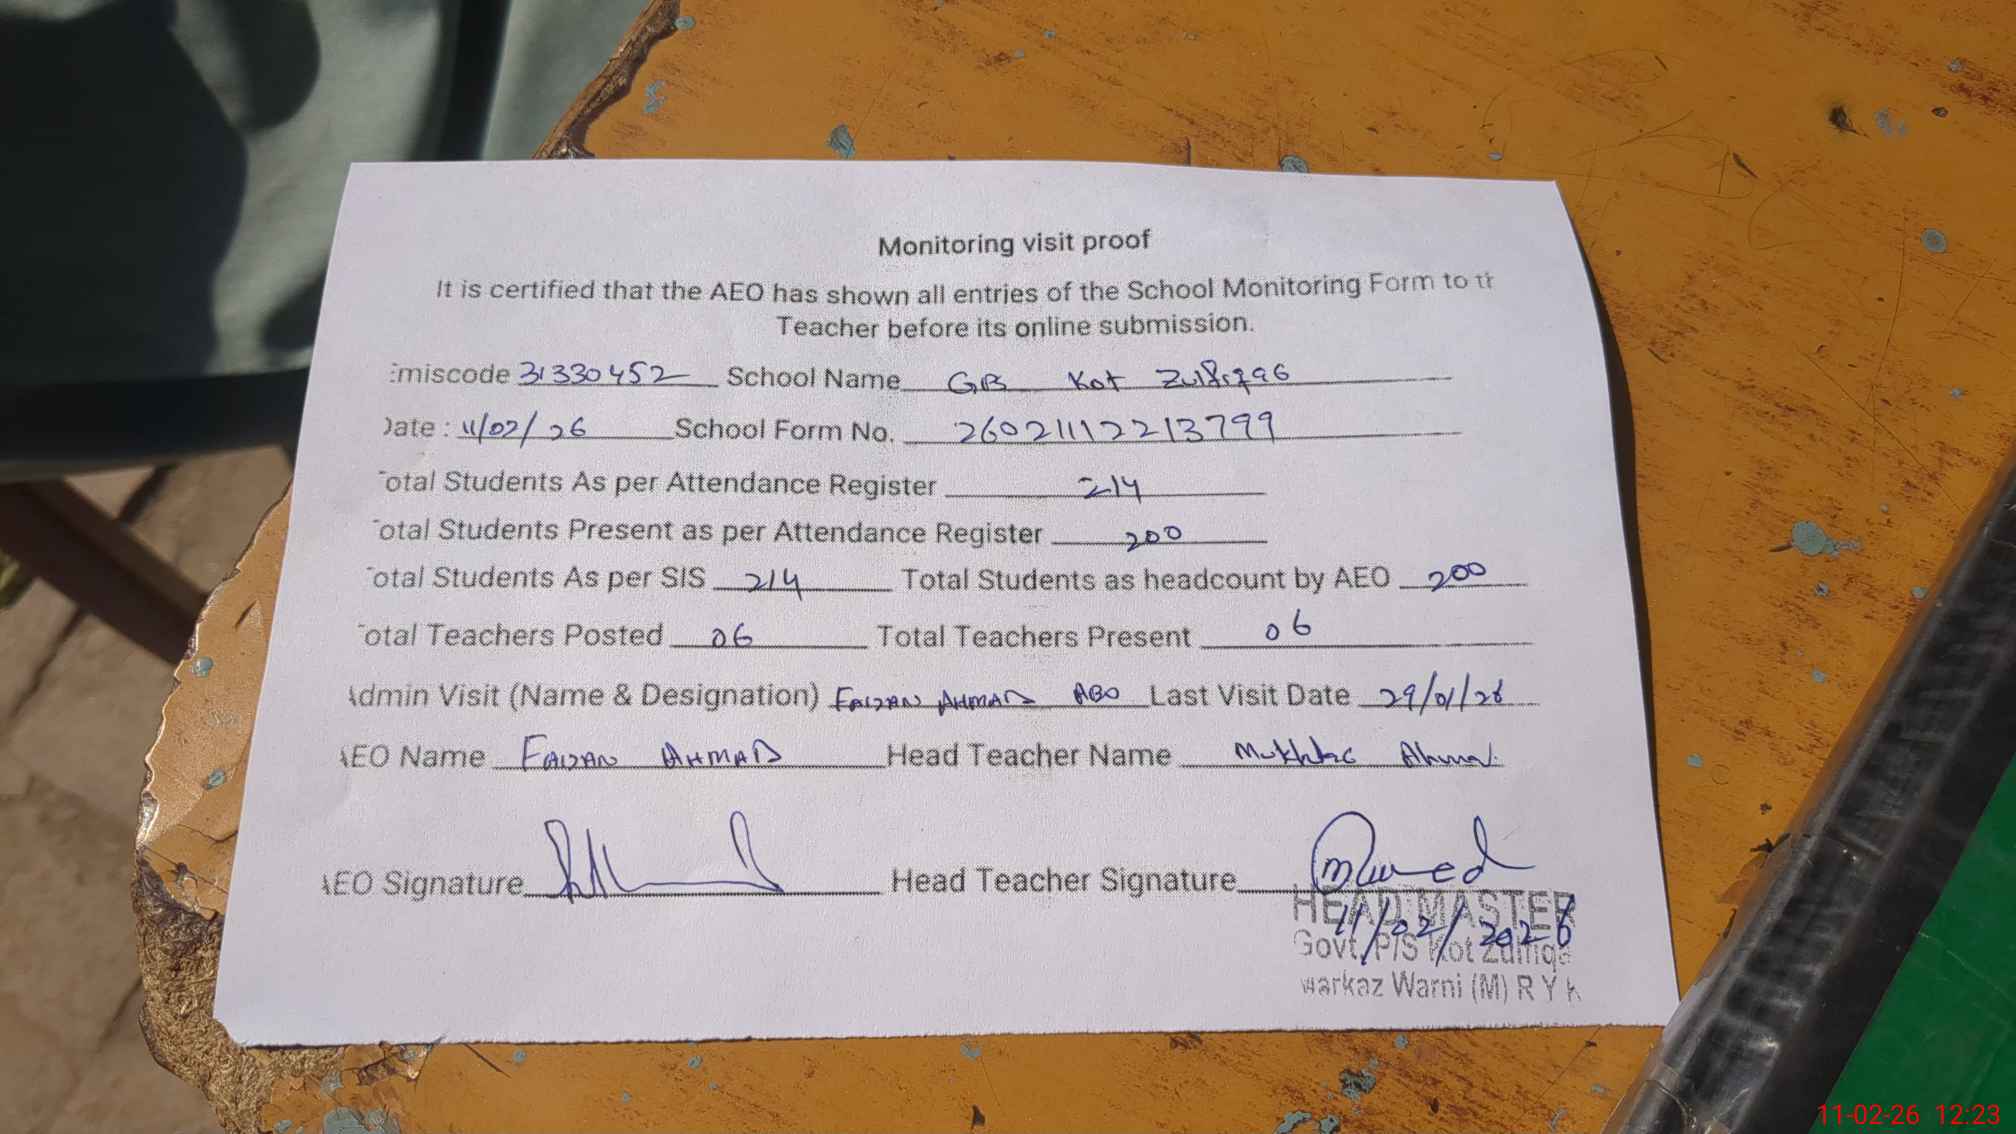 Monitoring visit proof
It is certified that the AEO has shown all entries of the School Monitoring Form to th
Teacher before its online submission.
Emiscode 31330452 School Name GB Kot Zulfiqar
Date : 11/02/26 School Form No. 260211122213799
Total Students As per Attendance Register 214
Total Students Present as per Attendance Register 200
Total Students As per SIS 214 Total Students as headcount by AEO 200
Total Teachers Posted 06 Total Teachers Present 06
Admin Visit (Name & Designation) FAIZAN AHMAD AEO Last Visit Date 29/01/26
AEO Name FAIZAN AHMAD Head Teacher Name Mukhtar Ahmad
AEO Signature Head Teacher Signature
HEAD MASTER
11/02/2026
Govt. P/S Kot Zulfiqa
Markaz Warni (M) R Y K
11-02-26 12:23